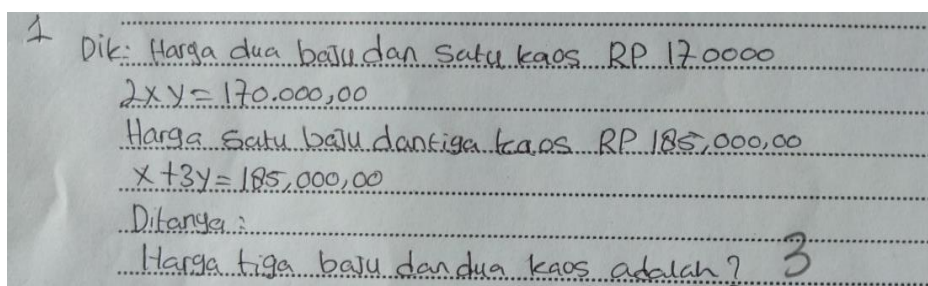 1
Dik: Harga dua baju dan satu kaos RP 170000
2xy = 170.000,00
Harga satu baju dan tiga kaos RP 185,000,00
x+3y = 185,000,00
Ditanya :
Harga tiga baju dan dua kaos adalah? 3